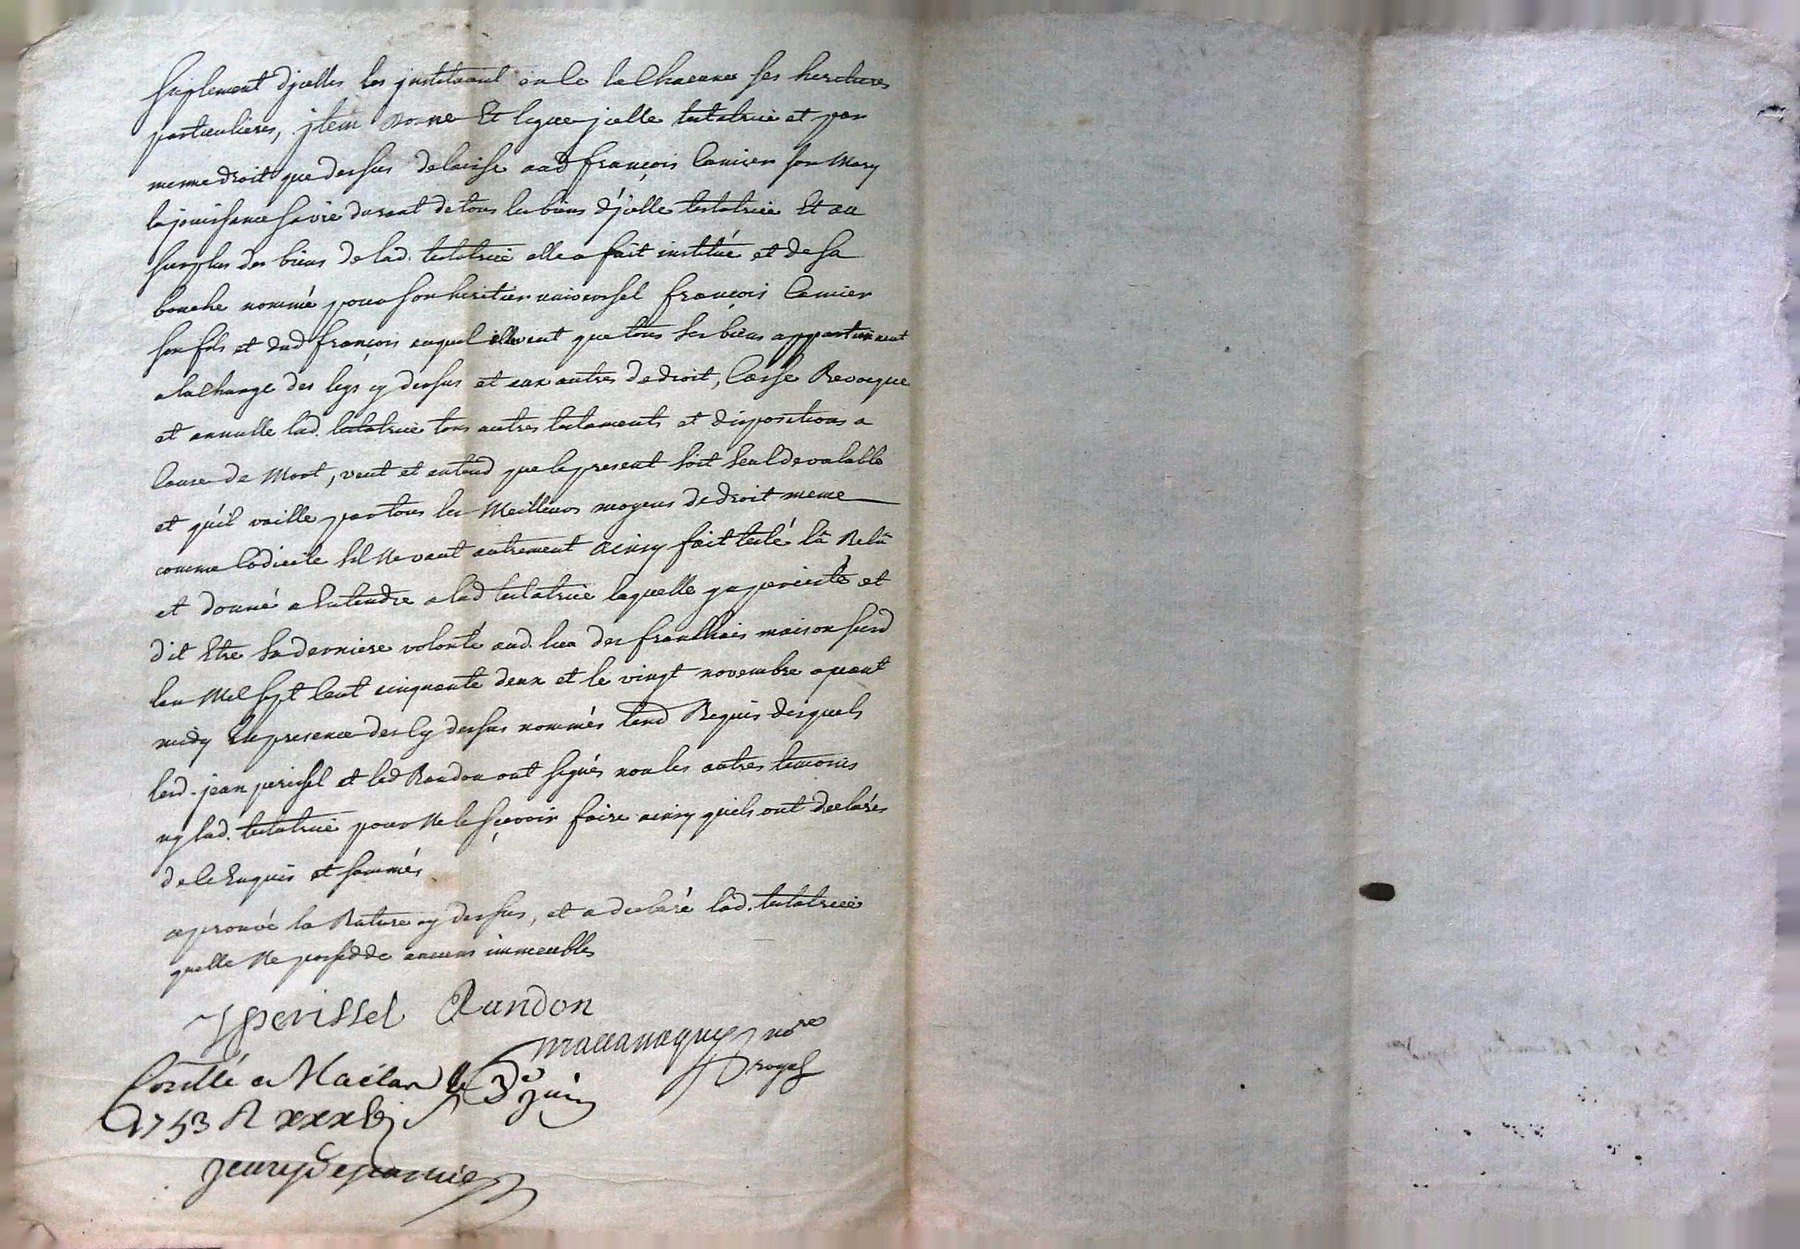 suplement d'jcelles les jnstituant en ce la chacunes ses heritieres
particulieres, jtem donne Et legue jcelle testatrice et par
meme droit que dessus delaisse aud françois Camier son Mary
la jouissance sa vie durant de tous les biens d'jcelle testatrice Et au
surplus des biens de lad. testatrice elle a fait institué et de sa
bouche nommé pour son heritier universel françois Camier
son fils et dud françois auquel elle veut que tous ses biens appartiennent
a la Charge des legs cy dessus et aux autres de droit, Casse Revocque
et annulle lad. testatrice tous autres testaments et dispositions a
Cause de Mort, veut et entend que le present soit seul de valable
et qu'il vaille par tous les Meilleurs moyens de droit meme
comme Codicile sil Ne vaut autrement Ainsy fait testé lû Relû
et donné a Entendre a lad testatrice laquelle y a persisté et
dit Etre sa derniere volonté aud. lieu des maison susd
lan Mil sept Cent cinquante deux et le vingt novembre avant
midy En presence des Cy dessus nommés temd Requis desquels
led. jean perissel et led Randon ont signés non les autres temoins
ny lad. testatrice pour Ne le sçavoir faire ainsy qu'ils ont declarés
de ce Enquis et sommés
aprouvé la Rature cy dessus, et a declaré lad. testatrice
quelle Ne possedde aucuns immeubles
J perissel Randon
nore
royal
Conllé a le 3e juin
1753 R